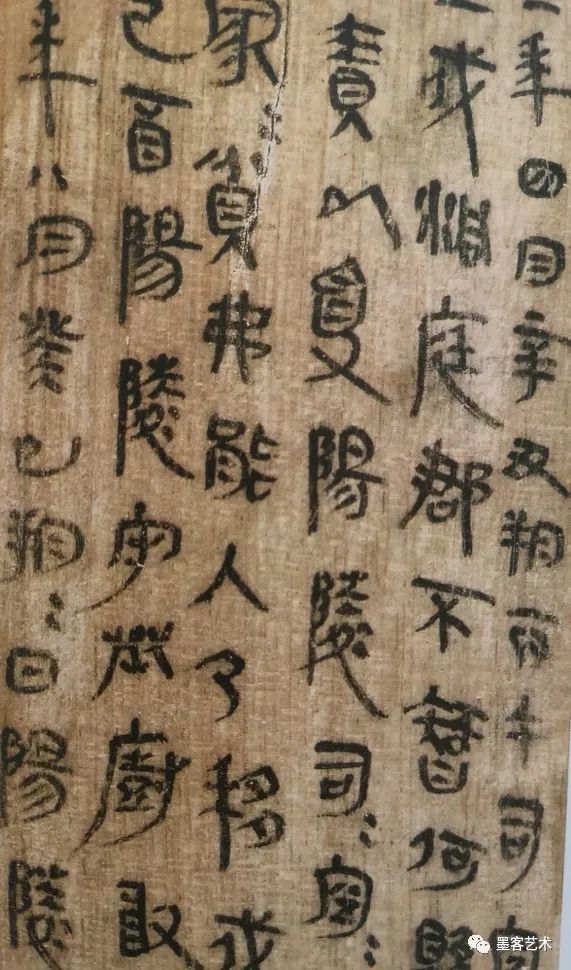 年四月辛丑朔丙午司空
戍洞庭郡不智何縣
責以受陽陵司=空=
家=貧弗能入乃移戍
己酉陽陵守丞廚敢
年八月癸巳朔=日陽陵
墨客艺术